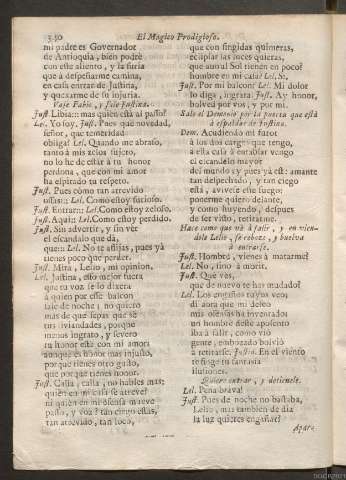 350
El Magico Prodigioso.
mi padre es Governador
de Antioquia, bien podrè
con este aliento, y la furia
que à despeñarme camina,
en casa entrar de Justina,
y quexarme de su injuria.
Vase Fabio, y sale Justina.
Just. Libia::: mas quien està al passo?
Lel. Yo soy. Just. Pues què novedad,
señor, què temeridad
obliga? Lel. Quando me abraso,
tanto à mis zelos sujeto,
no lo he de estàr à tu honor
perdona, que con mi amor
ha espirado tu respeto.
Just. Pues como tan atrevido
ossas::: Lel. Como estoy furioso.
Just. Entrar::: Lel. Como estoy zeloso.
Just. Aqui::: Lel. Como estoy perdido.
Just. Sin advertir, y sin vèr
el escandalo que dà,
que::: Lel. No te aflijas, pues yà
tienes poco que perder.
Just. Mira, Lelio, mi opinion.
Lel. Justina, esso mejor fuera
que tu voz se lo dixera
à quien por esse balcon
sale de noche; no quiero
mas de que sepas que sè
tus liviandades, porque
menos ingrato, y severo
tu honor estè con mi amor
aunque es honor mas injusto,
por que tienes otro gusto,
que por que tienes honor.
Just. Calla, calla, no hables mas;
quien en mi casa se atreve?
ni quien en mi ofensa mueve
passo, y voz? tan ciego estàs,
tan atrevido, tan loco,
que con fingidas quimeras,
eclipsar las luces quieras,
que aun al Sol tienen en poco?
hombre en mi casa? Lel. Sì.
Just. Por mi balcon? Lel. Mi dolor
lo diga, ingrata. Just. Ay honor,
bolved por vos, y por mi.
Sale el Demonio por la puerta que està
à espaldas de Justina.
Dem. Acudiendo mi furor
à los dos cargos que tengo,
à esta casa à entablar vengo
el escandalo mayor
del mundo; y pues yà este amante
tan despechado, y tan ciego
està, avivese este fuego;
ponerme quiero delante,
y como huyendo, despues
de ser visto, retirarme.
Hace como que và à salir, y en vien-
dole Lelio, se reboza, y buelve
à entrarse.
Just. Hombre, vienes à matarme?
Lel. No, sino à morir.
Just. Què vès,
que de nuevo te has mudado?
Lel. Los engaños tuyos veo;
dì aora que mi deseo
mis ofensas ha inventado:
un hombre desse aposento
iba à salir, como viò
gente, embozado bolviò
à retirarse. Just. En el viento
te finge tu fantasia
ilusiones.
Quiere entrar, y detienele.
Lel. Pena brava!
Just. Pues de noche no bastaba,
Lelio, mas tambien de dia
la luz quieres engañar?
Apar-